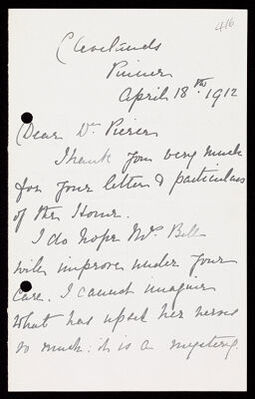 416
Pinner
April 18th 1912
Dear Dr Pierce
Thank you very much
for your letter & particulars
of the Home.
I do hope Mrs Bell
will improve under your
care. I cannot imagine
what has upset her nerves
so much: it is a mystery